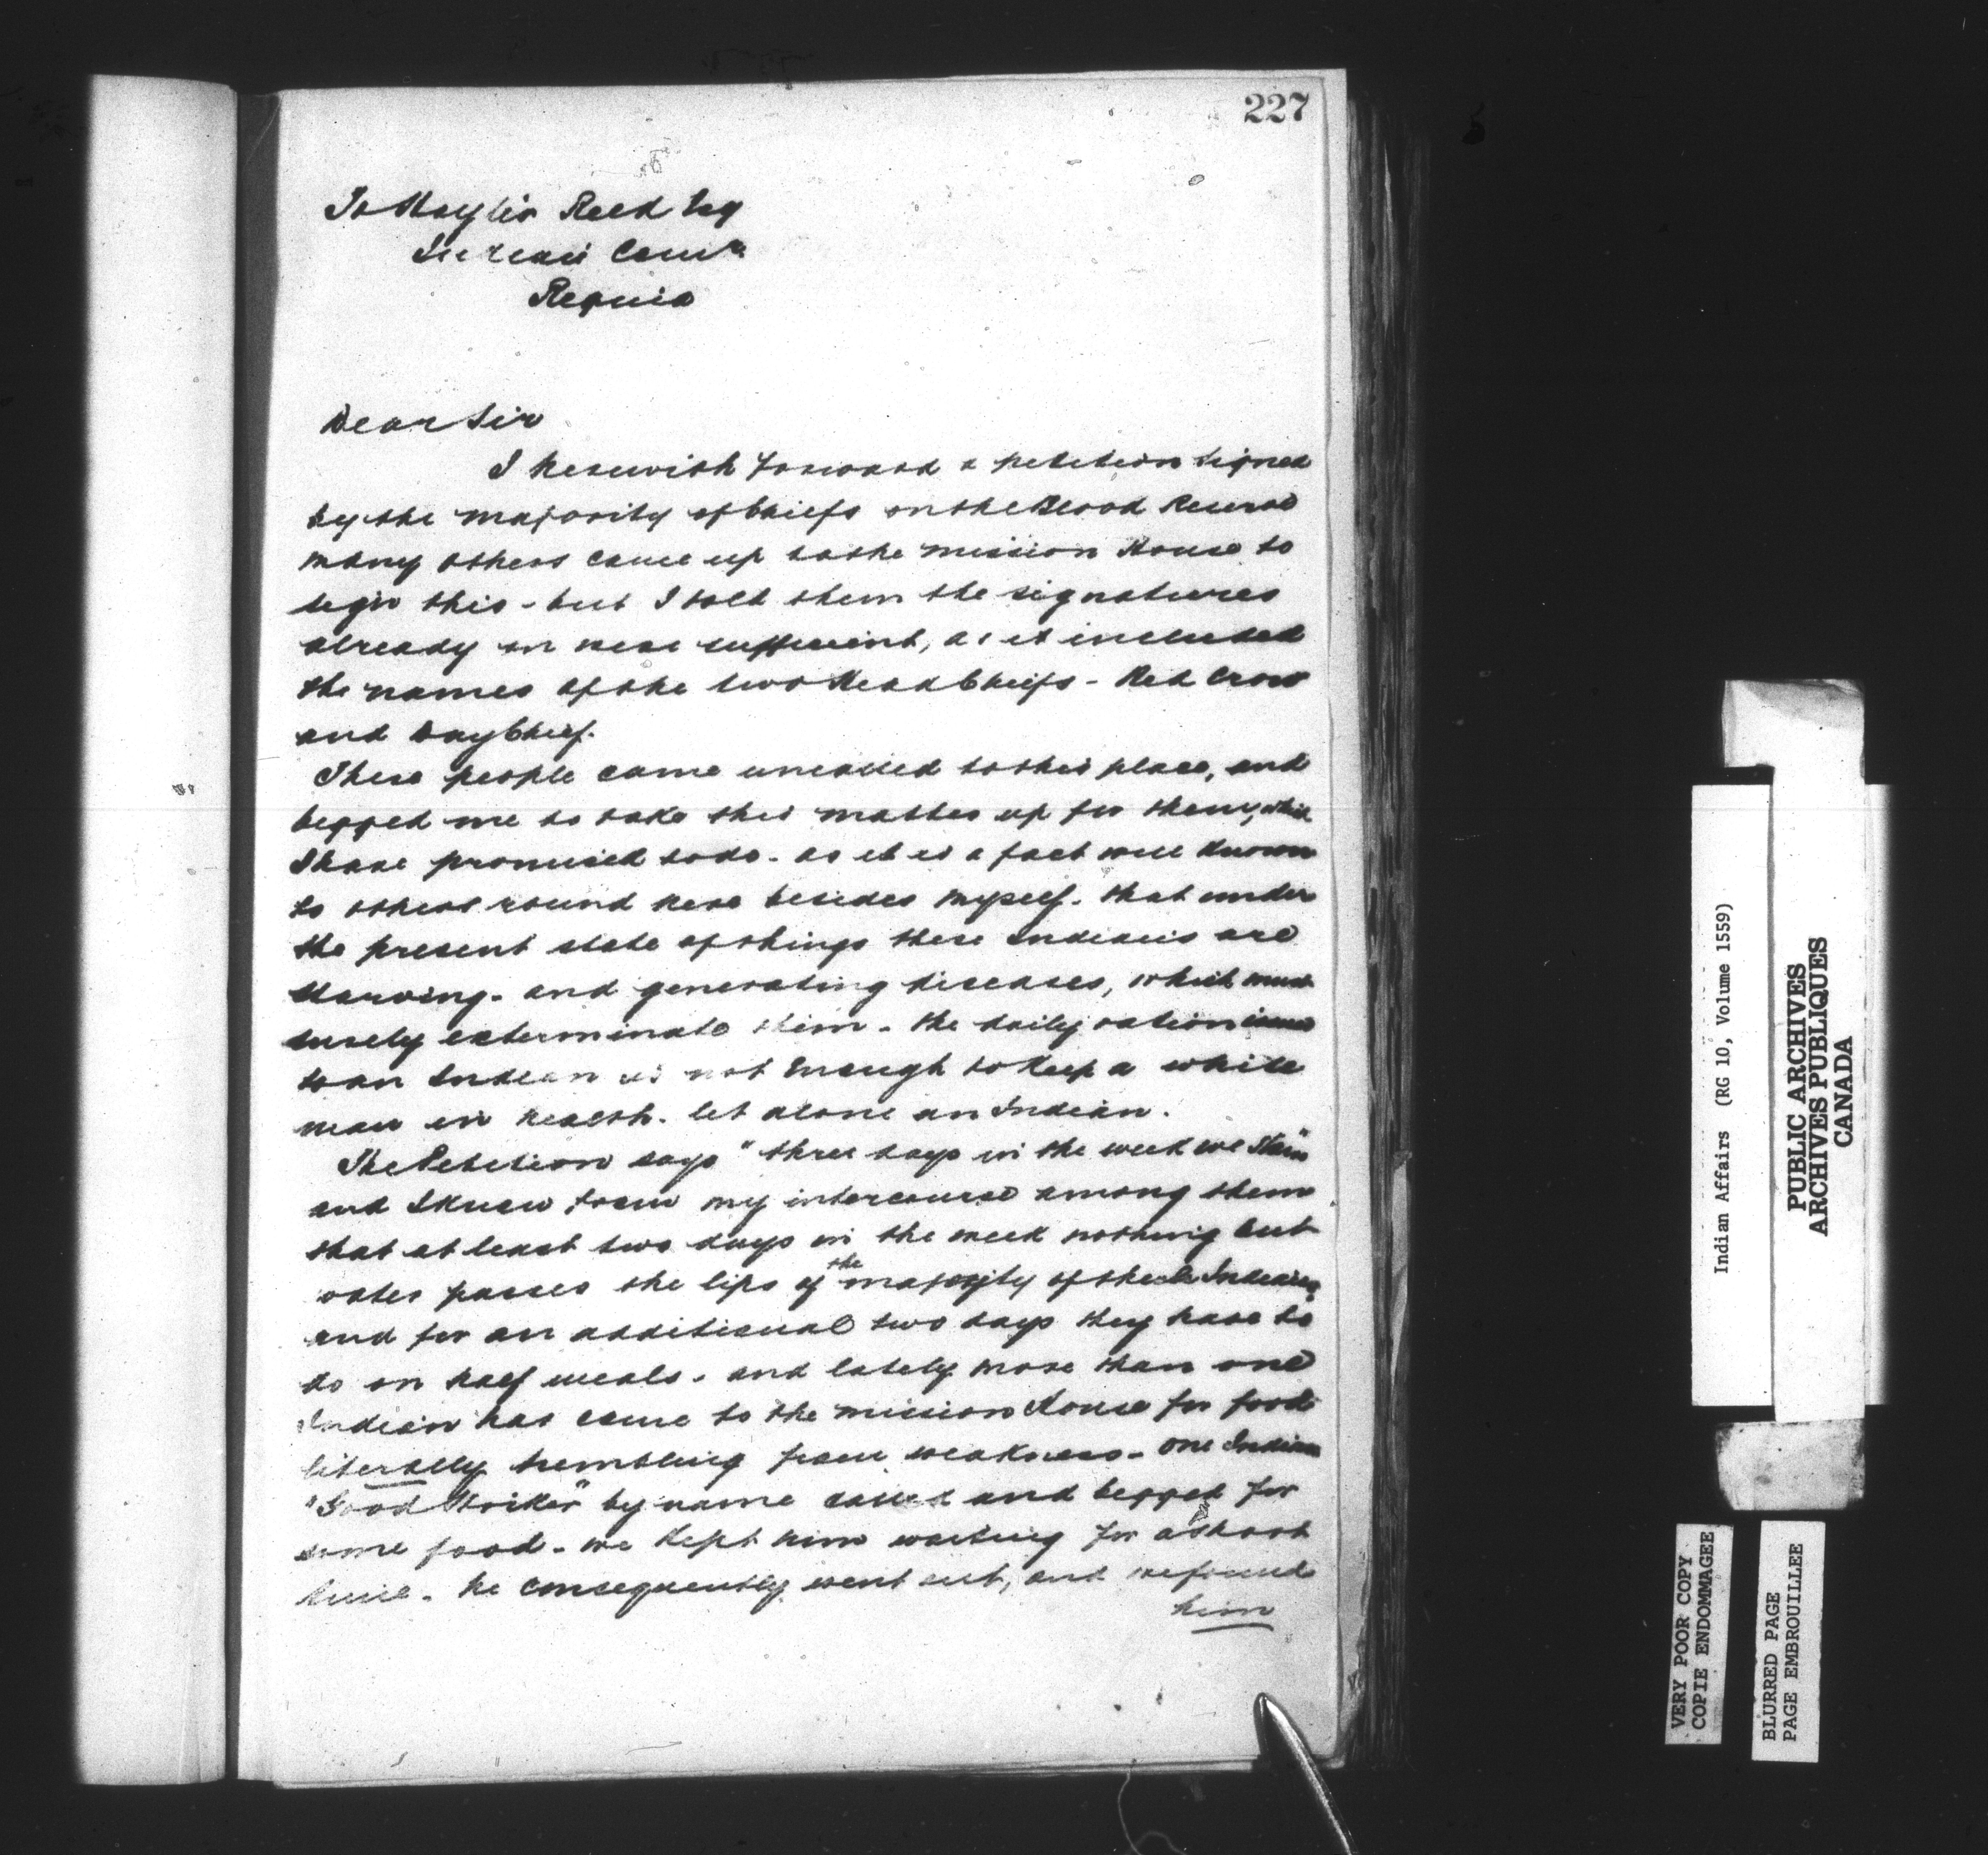 227
To Hayter Reed Esq
Indian Comr
Regina
Dear Sir
I herewith forward a petition signed
by the majority of Chiefs on the Blood Reserve
many others came up to the Mission House to
sign this - but I told them the signatures
already on were sufficient, as it included
the names of the two Head Chiefs - Red Crow
and Day Chief.
These people came uncalled to this place, and
begged me to take this matter up for them, which
I have promised to do. as it is a fact well known
to others round here besides myself. that under
the present state of things these Indians are
starving. and generating diseases, which must
surely exterminate them. the daily ration issued
to an Indian is not enough to keep a white
man in health. let alone an Indian.
The Petition says "three days in the week we starve"
and I know from my intercourse among them
that at least two days in the week nothing but
water passes the lips of the majority of these Indians
and for an additional two days they have to
do on half meals. and lately more than one
Indian has come to the Mission House for food
literally trembling from weakness. One Indian
"Good Striker" by name called and begged for
some food. we kept him waiting for a short
time. he consequently went out, and we found
him
Indian Affairs (RG 10, Volume 1559)
PUBLIC ARCHIVES
ARCHIVES PUBLIQUES
CANADA
VERY POOR COPY
COPIE ENDOMMAGEE
BLURRED PAGE
PAGE EMBROUILLEE